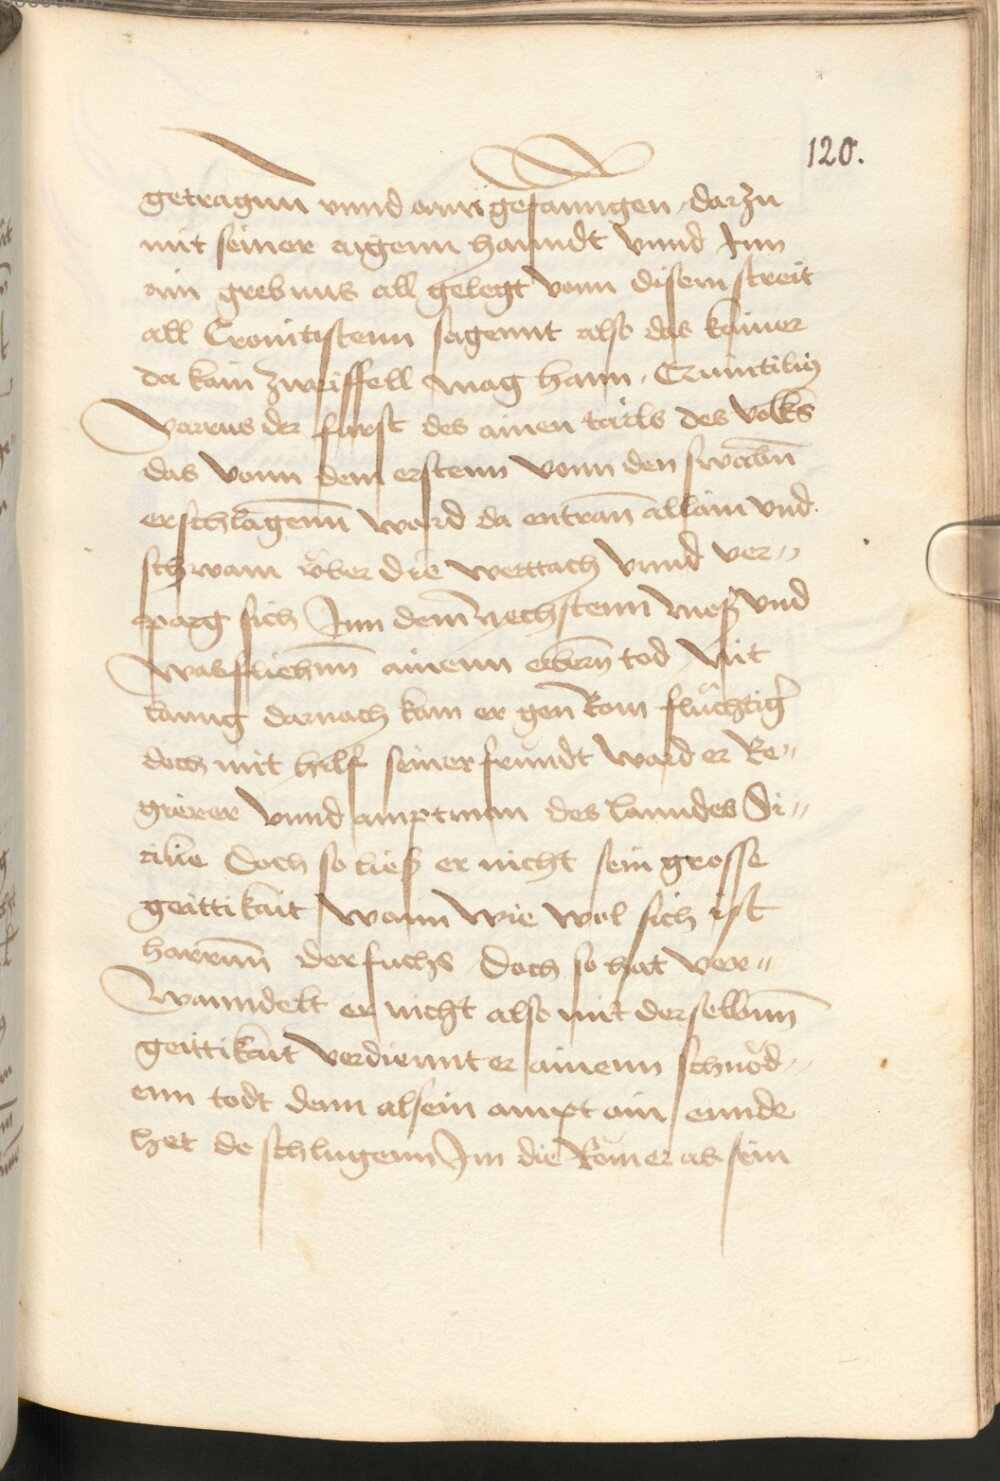 120.
getragnn vnnd ann gefanngen, darzu
mit seiner aigenn hanndt vnnd Inn
ain grebnus all gelegt vonn disem streit
all Cronitistenn sagennt also das kainer
da kain zweiffell mag hann. Quintilius
Varrus der fürst des ainen tails des volks
das vonn dem erstenn vonn den swabn̄
erschlagenn̄ ward da entran̄ allain vnd
schwam vber die werttach vnnd ver〃
parg sich Inn dem̄ nechstenn mos vnd
was fliehnn̄ ainenn erbern̄ tod Nit
lanng darnach kam er gen̄ Rom flüchtiger
doch mit hilf seiner freundt ward er Re〃
gierer vnnd amptman des lanndes Si〃
cilie Doch so lies er nicht sein grosse
geittikait Wann wie wol sich ist
harnn̄ der fuchs Doch so hat ver〃
wanndelt er nicht also mit derselbnn̄
geittikait verdiennt er ainenn schnöd〃
enn todt denn als ein ampt ain ennde
het do schlugenn Im die Römer ab sein